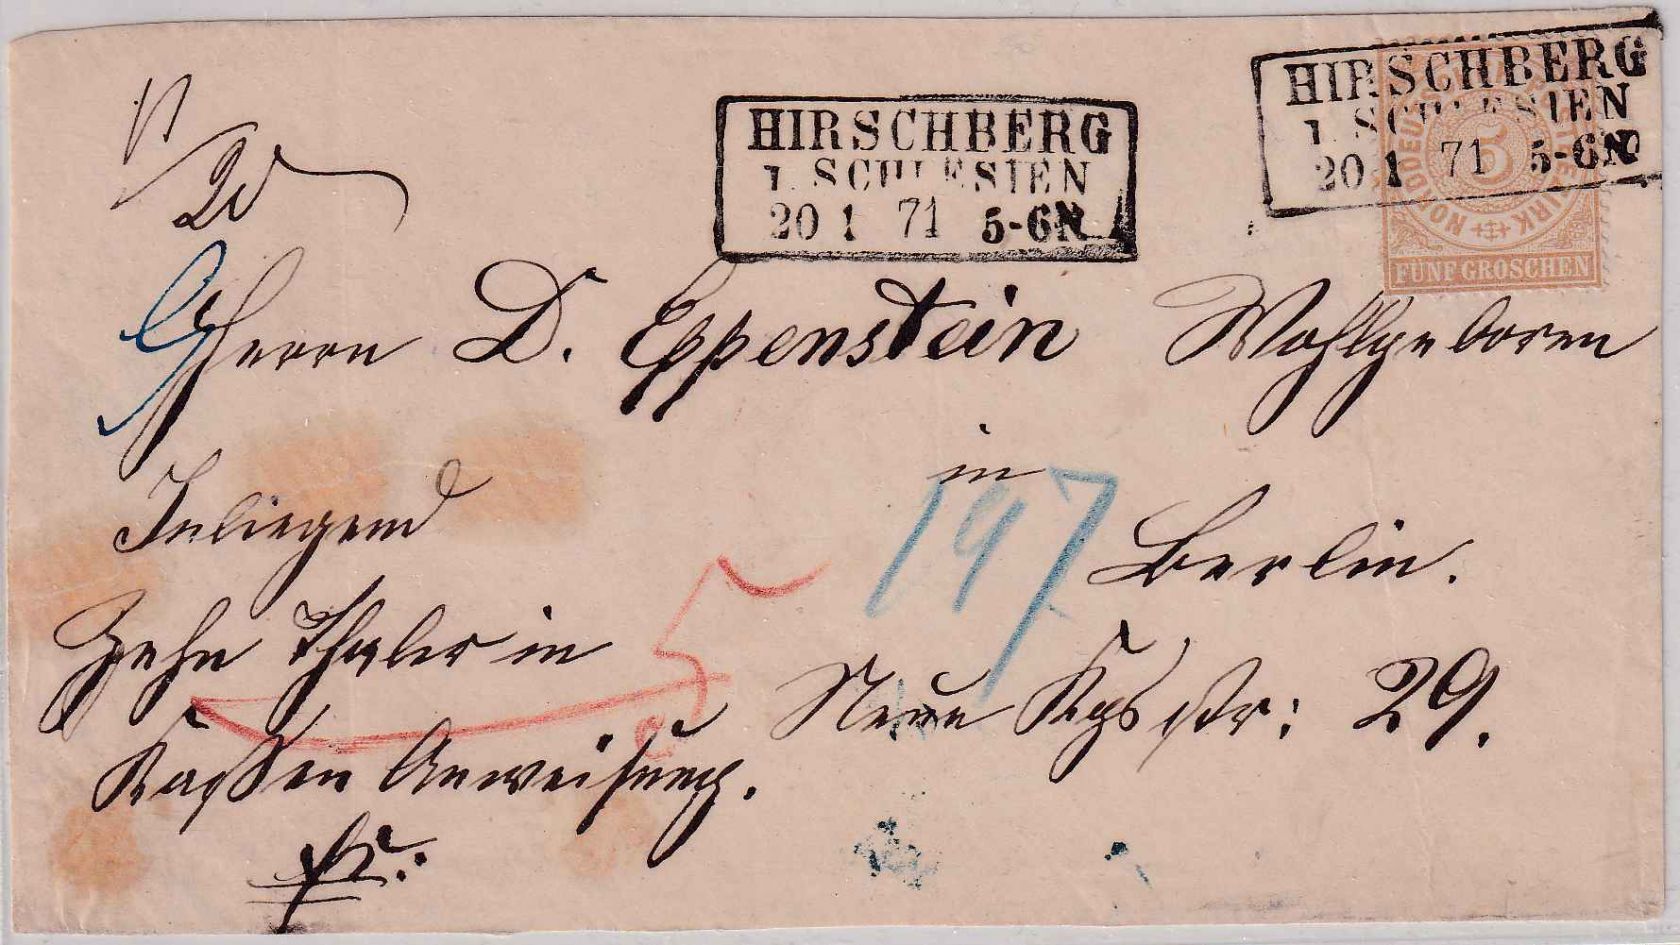 HIRSCHBERG
I. SCHLESIEN
20 1 71 5-6N
HIRSCHBERG
I. SCHLESIEN
20 1 71 5-6N
5
NORDDEUTSCHER POSTBEZIRK
FÜNF GROSCHEN
Herrn D. Eppenstein Wohlgeboren
in
Berlin.
Neue Kgs str: 29.
197
Inliegend
Zehn Thaler in
Kassen Anweisung.
fr.
5